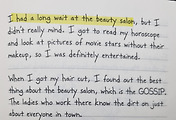 I had a long wait at the beauty salon, but I
didn't really mind. I got to read my horoscope
and look at pictures of movie stars without their
makeup, so I was definitely entertained.
When I got my hair cut, I found out the best
thing about the beauty salon, which is the GOSSIP.
The ladies who work there know the dirt on just
about everyone in town.